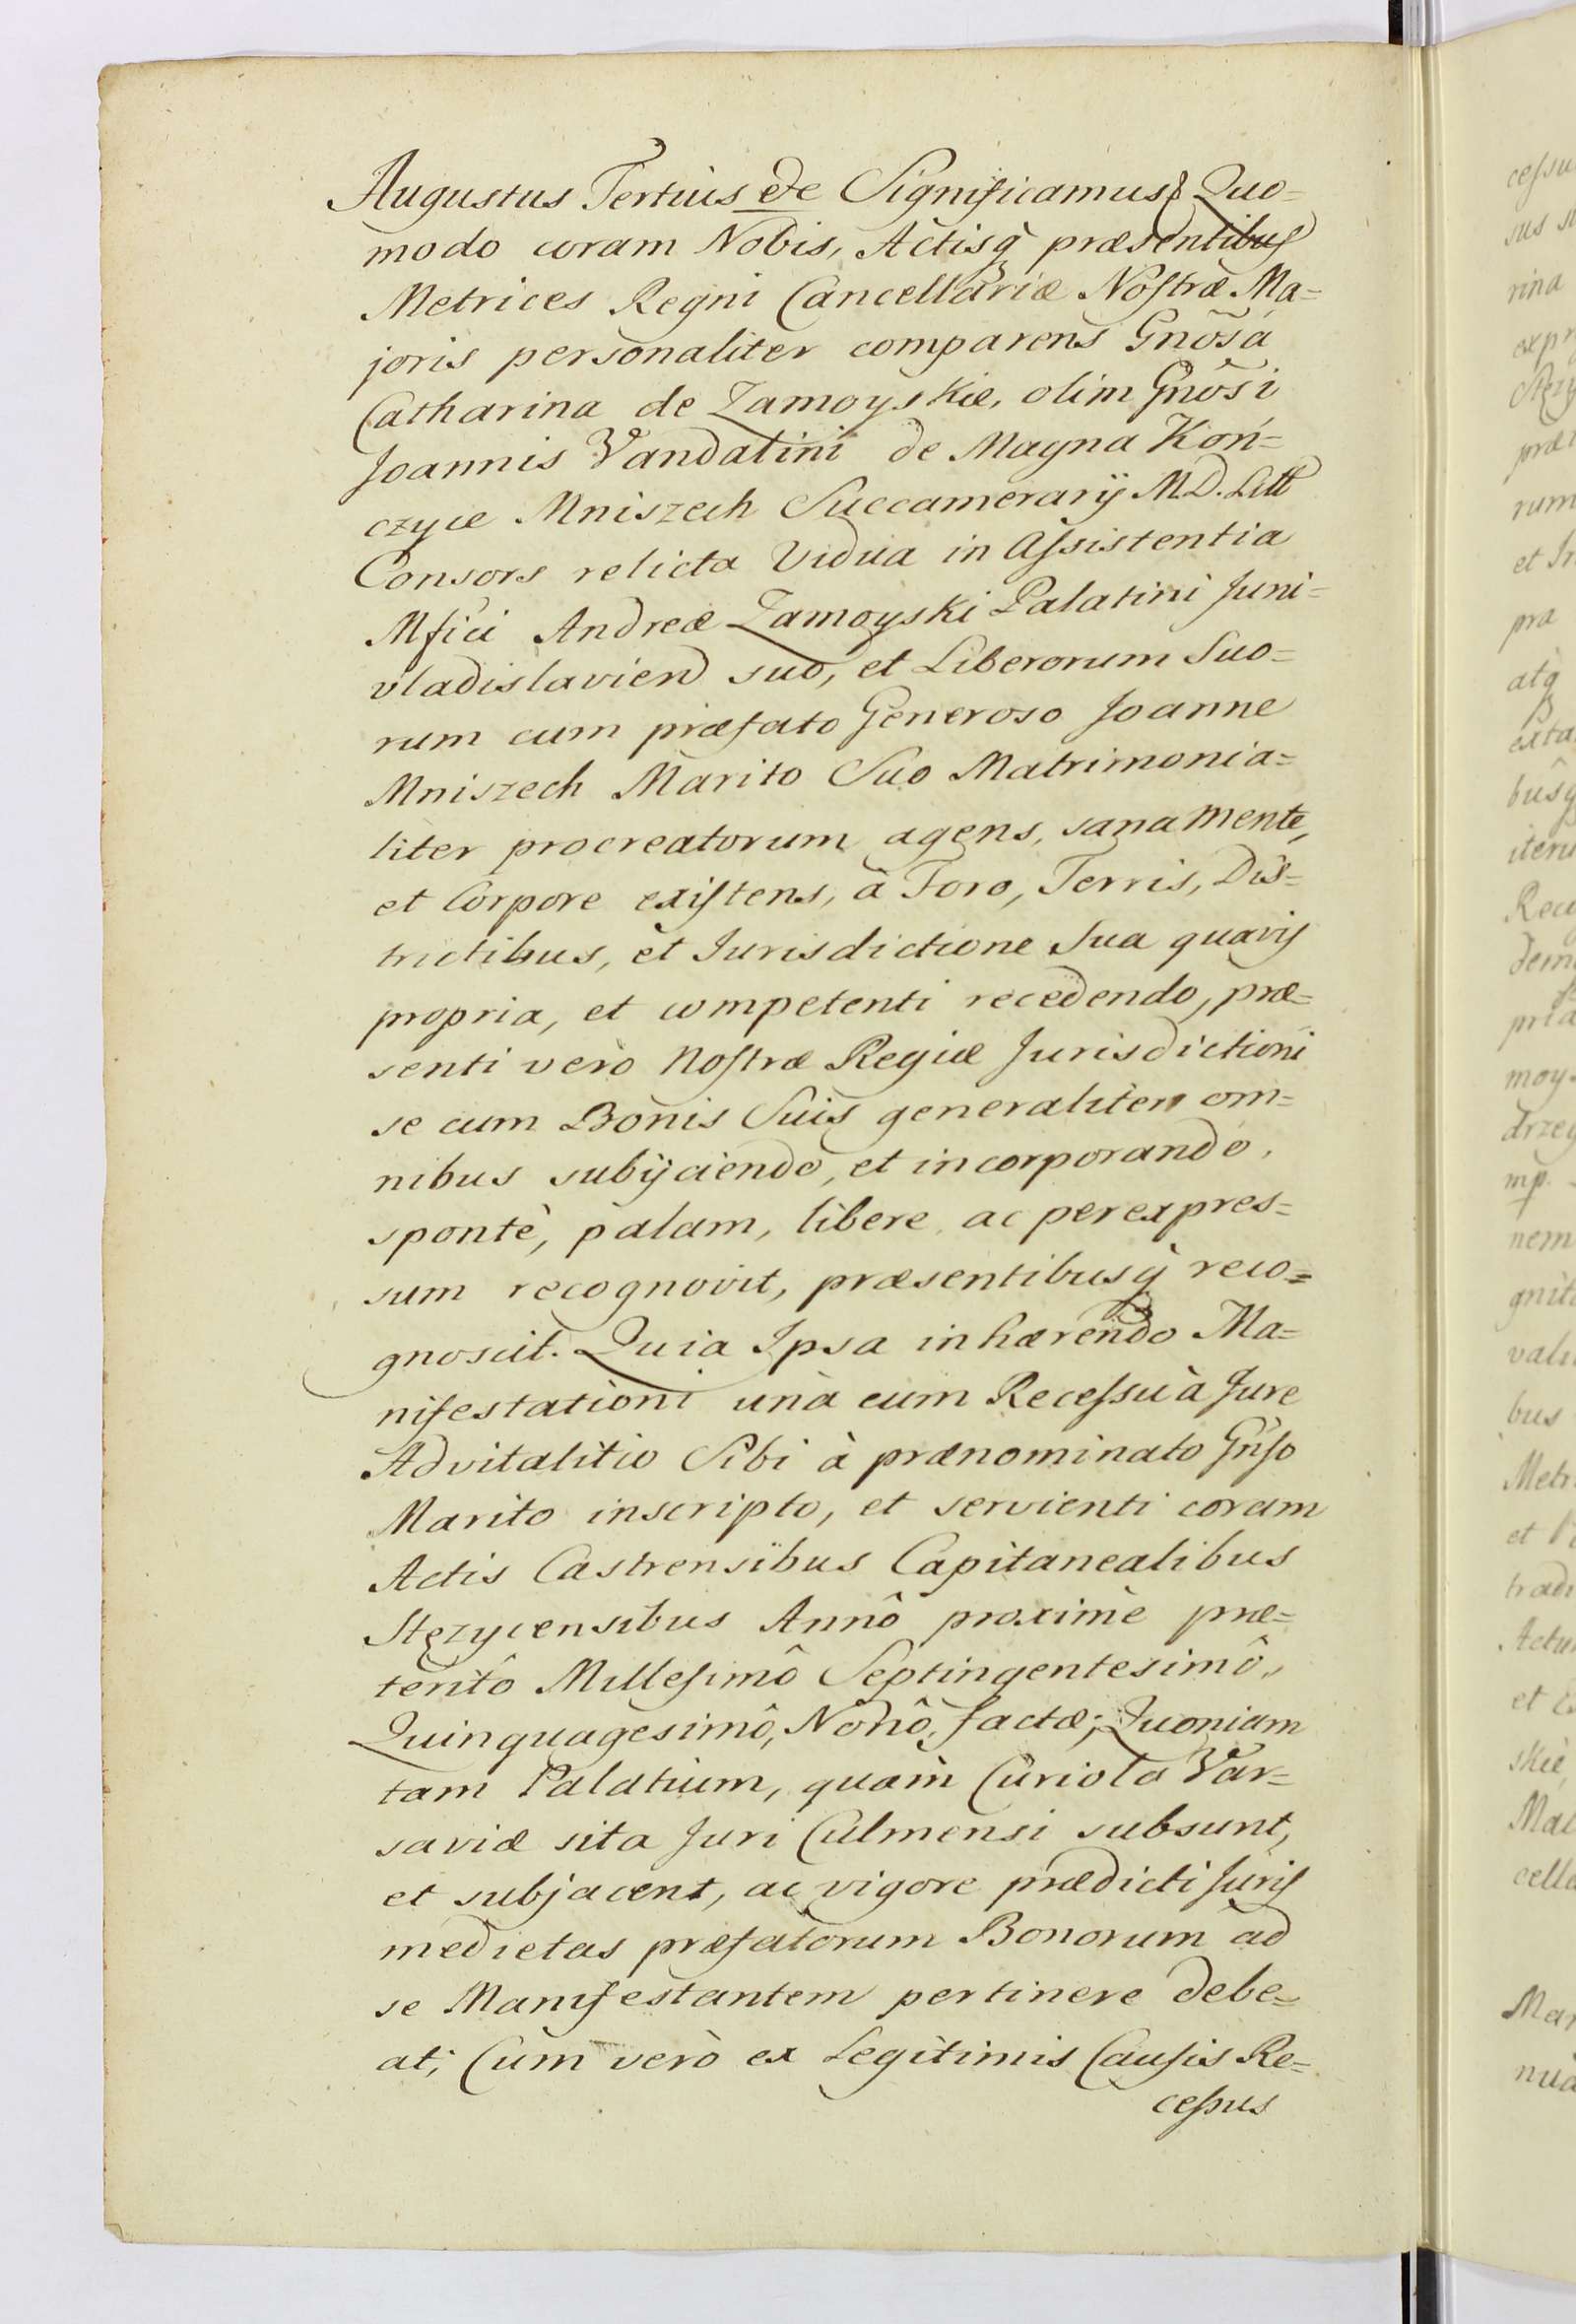 Augustus Tertius etc Significamus & Quo=
modo coram Nobis, Actisq̀ præsentibus
Metrices Regni Cancellariæ Nostræ Ma=
joris personaliter comparens Gnõsa
Catharina de Zamoyskie, olim Gnõsi
Joannis Vandalini de Magna Koń=
czyce Mniszech Succamerarij M.D. Litt
Consors relicta Vidua in Assistentia
Mfici Andreæ Zamoyski Palatini Juni=
vladislavien suo, et Liberorum Suo=
rum cum præfato Generoso Joanne
Mniszech Marito Suo Matrimonia=
liter procreatorum agens, sana mente,
et Corpore existens, à Foro, Terris, Dis=
trictibus, et Jurisdictione Sua quavis
propria, et competenti recedendo, præ=
senti verò Nostræ Regiæ Jurisdictioni
se cum Bonis Suis generaliter om=
nibus subijciendo, et incorporando,
spontè, palam, libere ac per expres=
sum recognovit, præsentibusq̀ reco=
gnoscit. Quia Ipsa inhærendo Ma=
nifestationi unà cum Recessu à Jure
Advitalitio Sibi à prænominato Gnso
Marito inscripto, et servienti coram
Actis Castrensibus Capitanealibus
Stęzycensibus Annô proximè præ=
teritô Millesimô Septingentesimô,
Quinquagesimô, Nonô, factæ; Quoniam
tam Palatium, quam Curiola Var=
saviæ sita Juri Culmensi subsunt,
et subjacent, ac vigore prædicti Juris
medietas præfatorum Bonorum ad
se Manifestantem pertinere debe=
at; Cum verò ex Legitimis Causis Re=
cessus